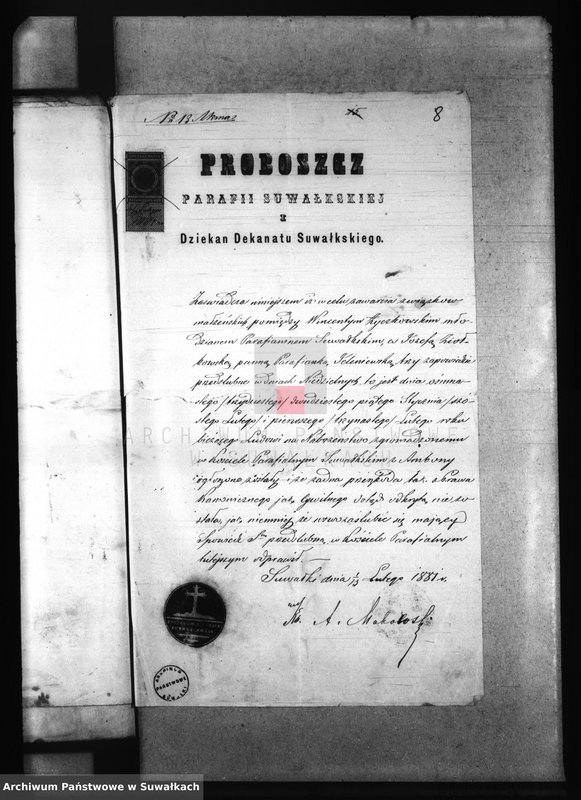 8
PROBOSZCZ
PARAFII SUWAŁKSKIEJ
I
Dziekan Dekanatu Suwałkskiego.
Zaświadcza niniejszem iż w celu zawarcia związków
małżeńskich pomiędzy Wincentym Życzkowskim mło-
dzianem Parafianinem Suwałkskim, a Józefą Ziół-
kowską panną Parafianką Jeleniewską, trzy zapowiedzie
przedślubne w dniach Niedzielnych, to jest dnia ośmna-
stego /trzydziestego/ dwudziestego piątego Stycznia /szó-
stego Lutego/ i pierwszego /trzynastego/ Lutego roku
bieżącego Ludowi na Nabożeństwo zgromadzonemu
w Kościele Parafialnym Suwałkskim z Ambony
ogłoszone zostały i że żadna przeszkoda tak z prawa
Kanonicznego jak Cywilnego dotąd odkrytą nie zo-
stała, jak niemniej że nowozaślubić się mający
Spowiedź Stą przedślubną w Kościele Parafialnym
tutejszym odprawił.
Suwałki dnia 1/13 Lutego 1881 r.
Ks. A.
ARCHIWUM
PAŃSTWOWE
Archiwum Państwowe w Suwałkach